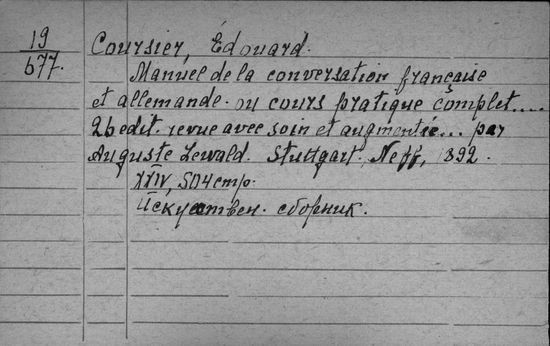 19
677.
Coursier, Édouard.
Manuel de la conversation française
et allemande ou cours pratique complet....
26 edit. revue avec soin et augmentée... par
Auguste Lewald. Stuttgart, Neff, 1892.
XXIV, 504 стр.
Искусствен. сборник.